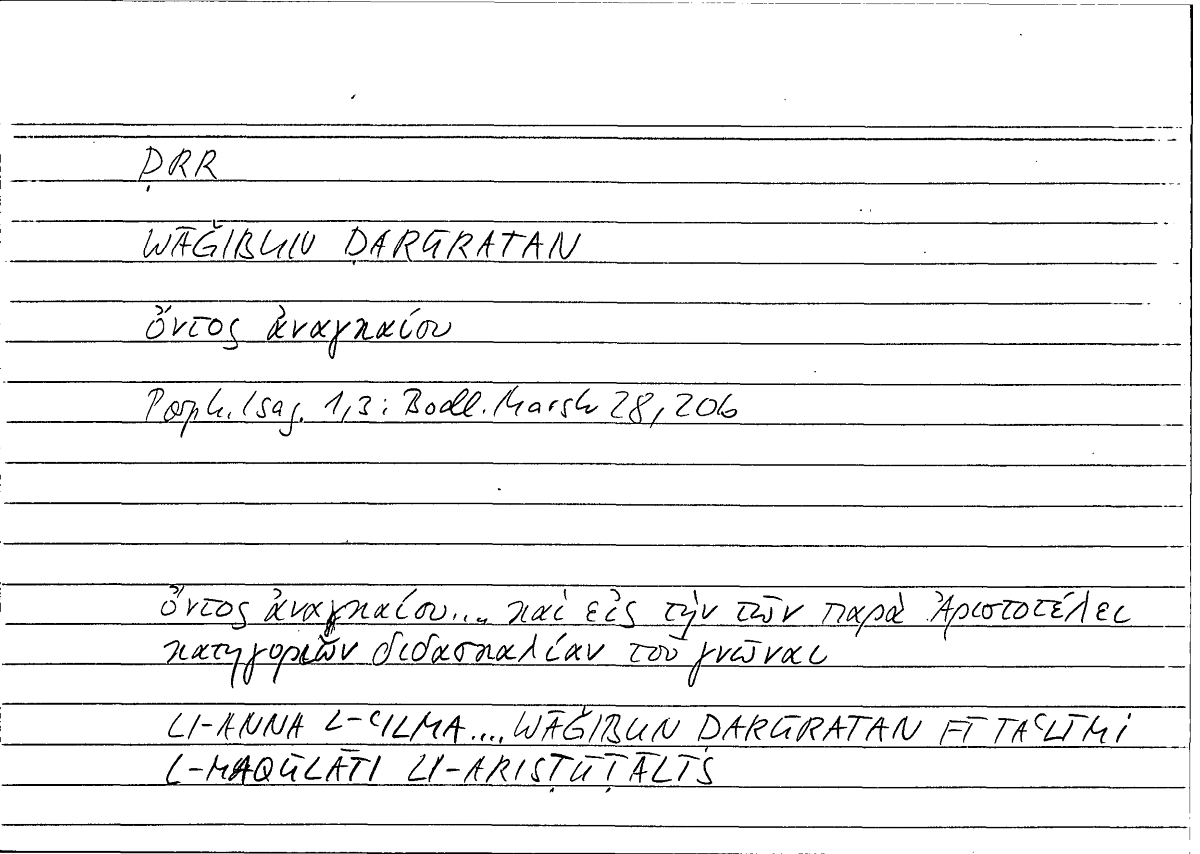 ḌRR
WĀǦIBUN ḌARŪRATAN
ὄντος ἀναγκαίου
Porph. Isag. 1,3: Bodl. Marsh 28,206
ὄντος ἀναγκαίου... καὶ εἰς τὴν τῶν παρὰ Ἀριστοτέλει
κατηγοριῶν διδασκαλίαν τοῦ γνῶναι
LI-ANNA L-ʿILMA.... WĀǦIBUN ḌARŪRATAN FĪ TAʿLĪMI
L-MAQŪLĀTI LI-ARISṬŪṬĀLĪS